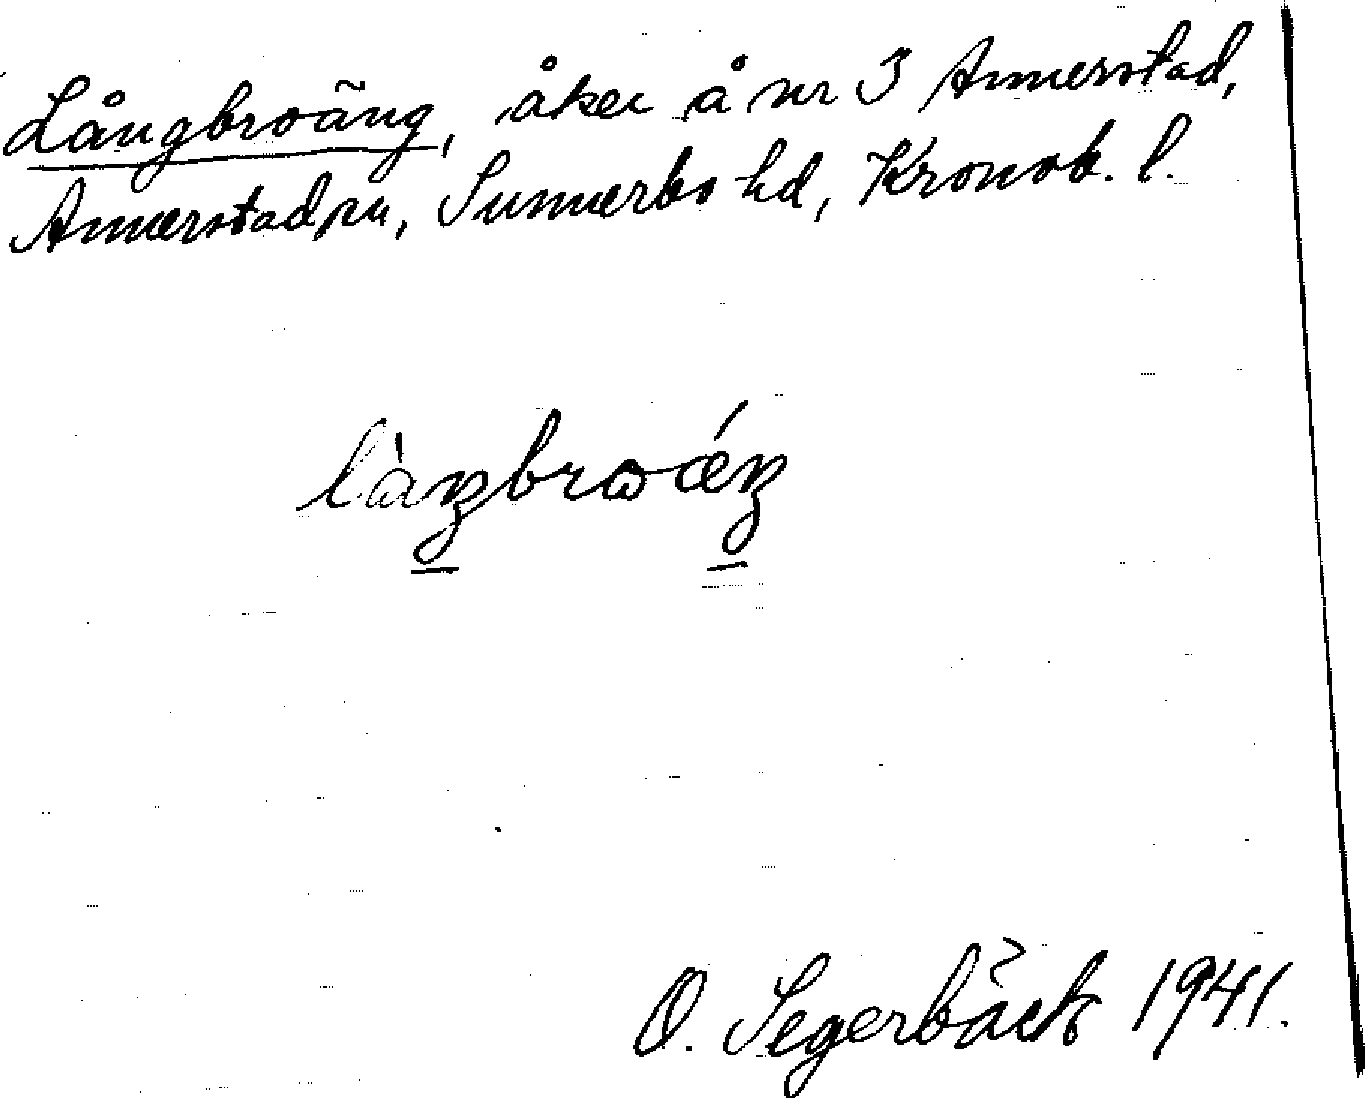 Långbroäng, åker å nr 3 Annerstad,
Annerstad sn, Sunnerbo hd, Kronob. l.
làŋbrωǽŋ
O. Segerbäck 1941.